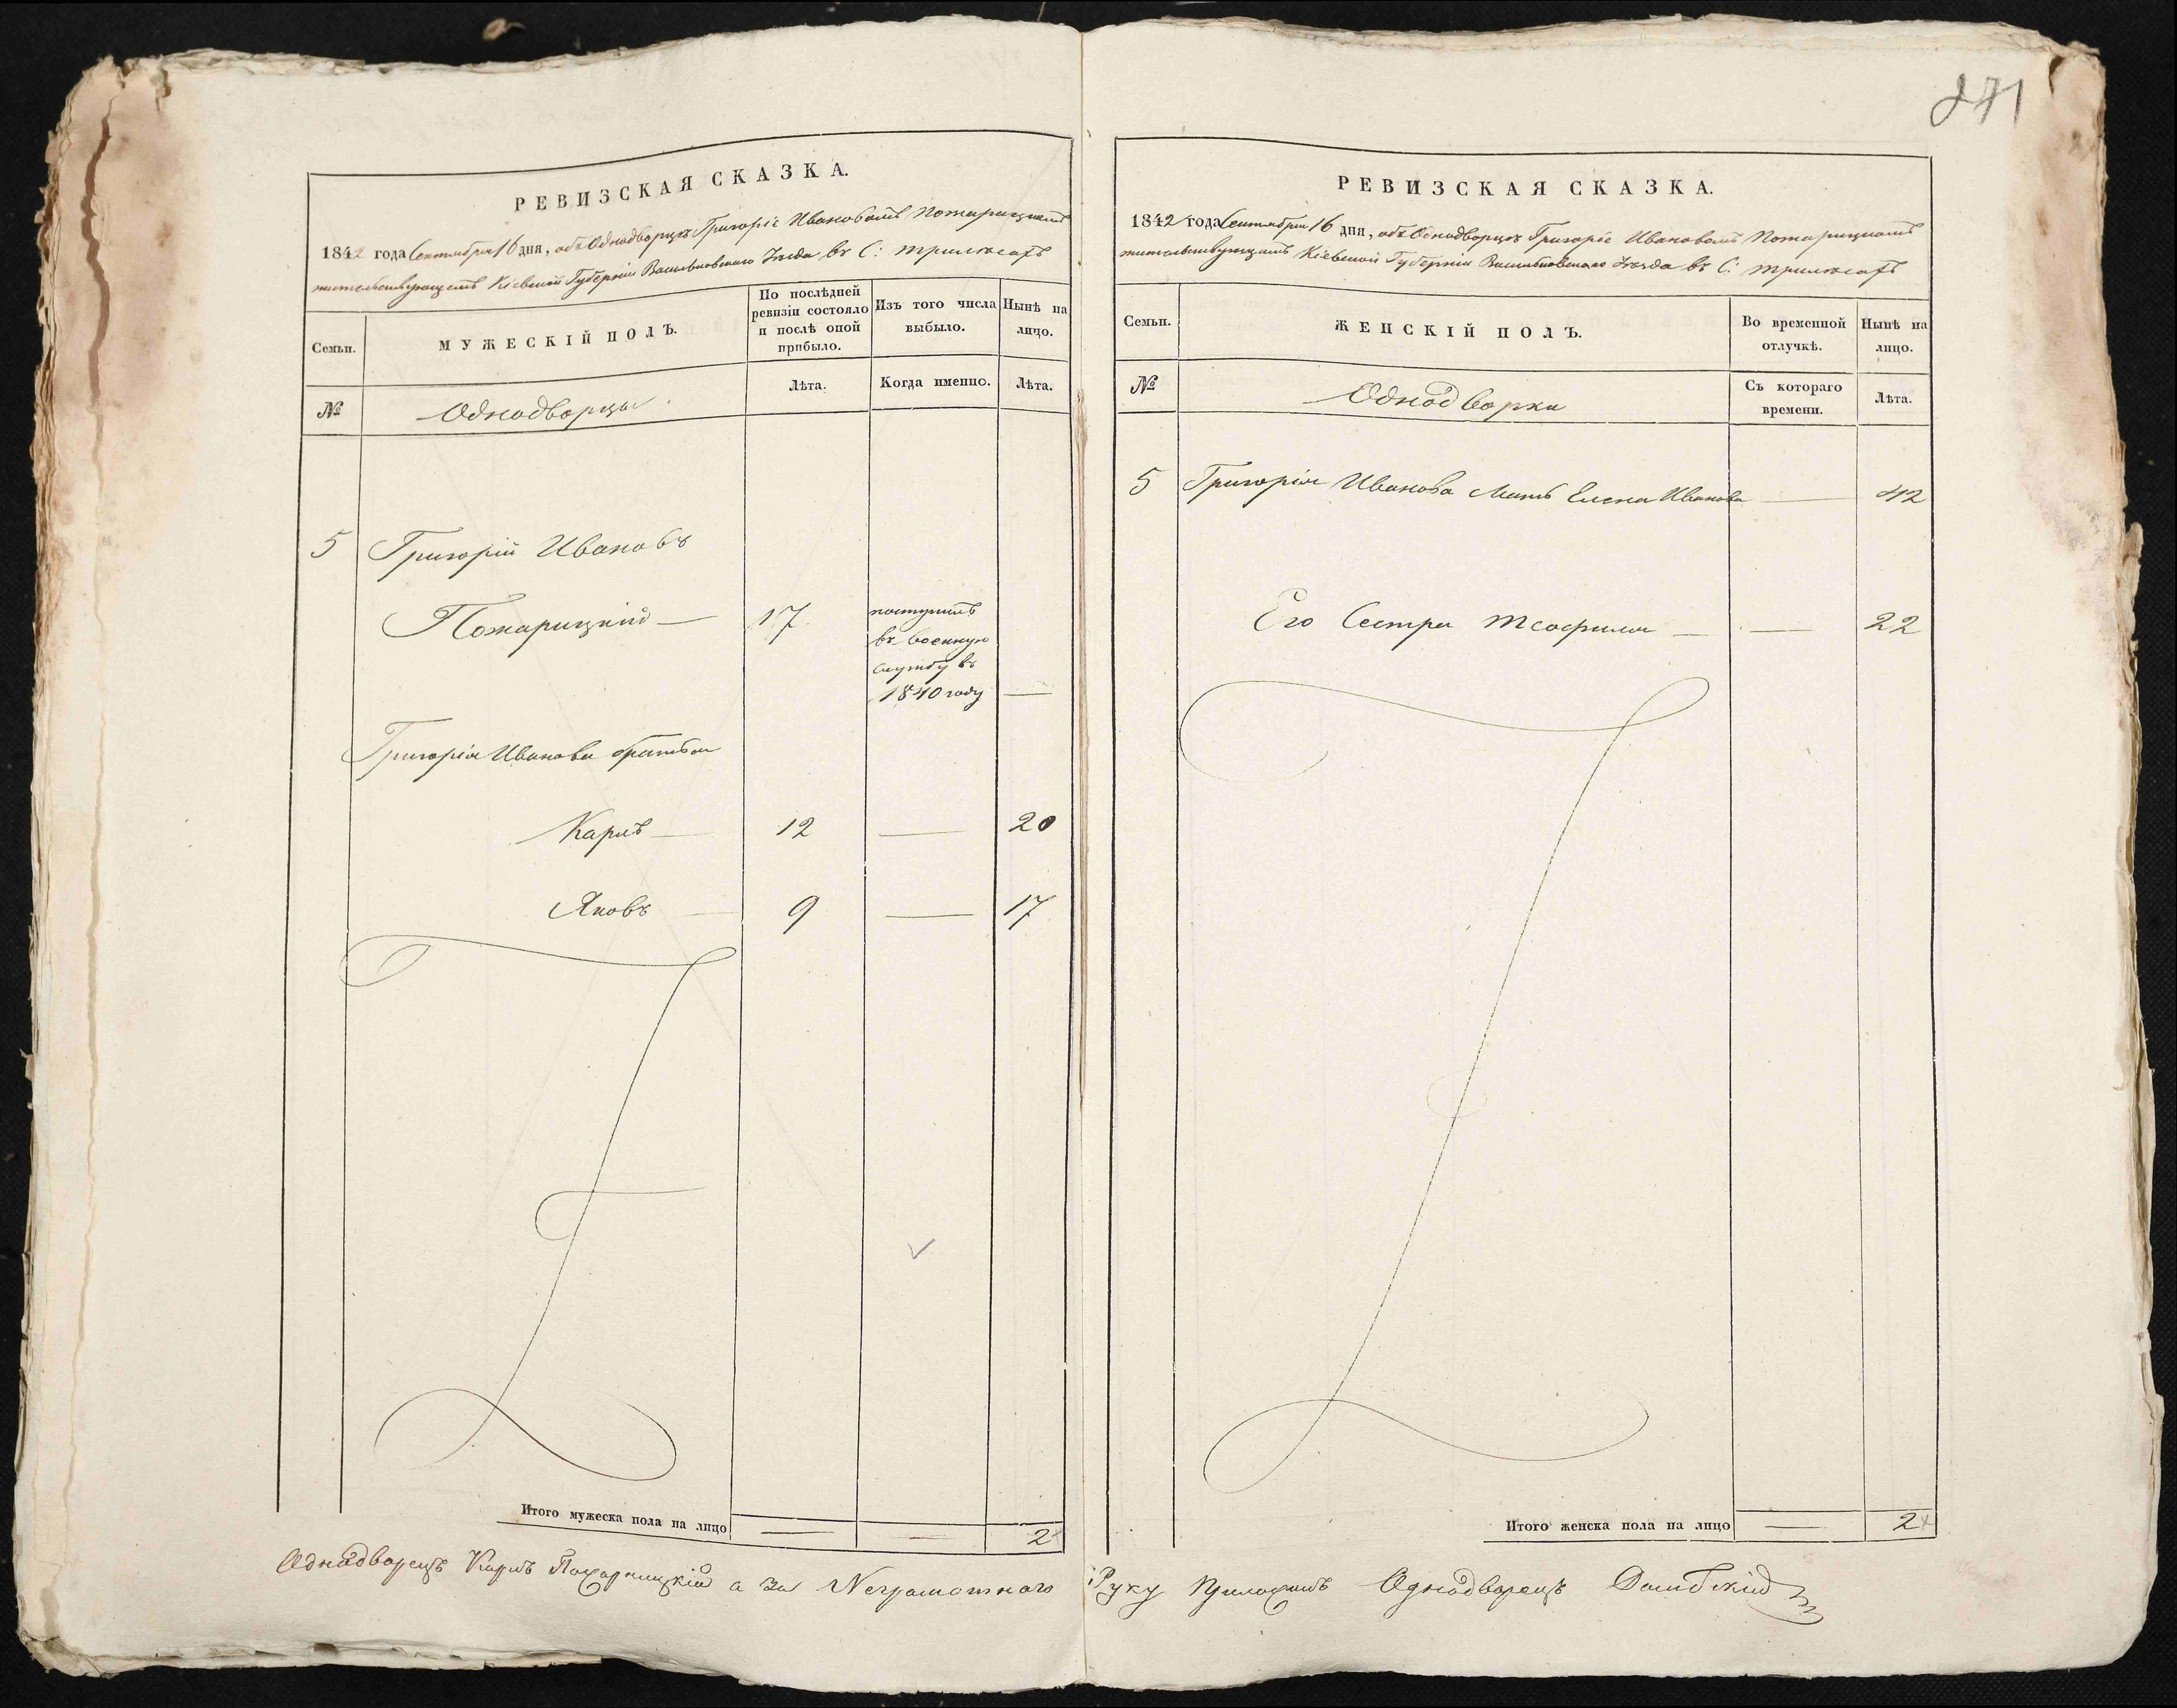 271
РЕВИЗСКАЯ СКАЗКА.
1842 года Сентября 16 дня, объ Однодворцѣ Григоріе Ивановомъ Пожарицкомъ
жительствующемъ Кіевской Губерніи Васильковскаго Уѣзда въ С: Трилѣсахъ
Семьи.
МУЖЕСКІЙ ПОЛЪ.
По послѣдней ревизіи состояло и послѣ оной прибыло.
Изъ того числа выбыло.
Нынѣ на лицо.
№
Однодворцы.
Лѣта.
Когда именно.
Лѣта.
5 Григорій Ивановъ
Пожарицкій — 17.
поступилъ
въ военную
службу въ
1840 году —
Григорія Иванова братья
Карлъ — 12 — 20
Яковъ — 9 — 17
Итого мужеска пола на лицо — — 2
Однодворецъ Карлъ Пожарницкій а За Неграмотнаго
РЕВИЗСКАЯ СКАЗКА.
1842 года Сентября 16 дня, объ Однодворцѣ Григоріе Ивановомъ Пожарицкомъ
жительствующемъ Кіевской Губерніи Васильковскаго Уѣзда въ С: Трилѣсахъ
Семьи.
ЖЕНСКІЙ ПОЛЪ.
Во временной отлучкѣ.
Нынѣ на лицо.
№
Однодворки
Съ котораго времени.
Лѣта.
5 Григорія Иванова Мать Елена Иванова — 42
Его Сестра Теофила — — 22
Итого женска пола на лицо — 2
Руку Приложилъ Однодворецъ